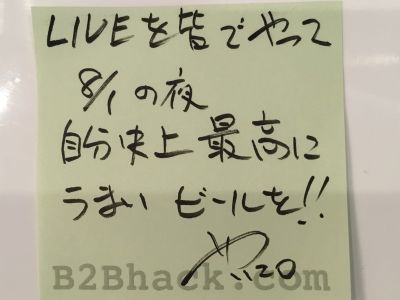 LIVEを皆でやって
8/1の夜
自分史上最高に
うまいビールを!!
B2Bhack.com